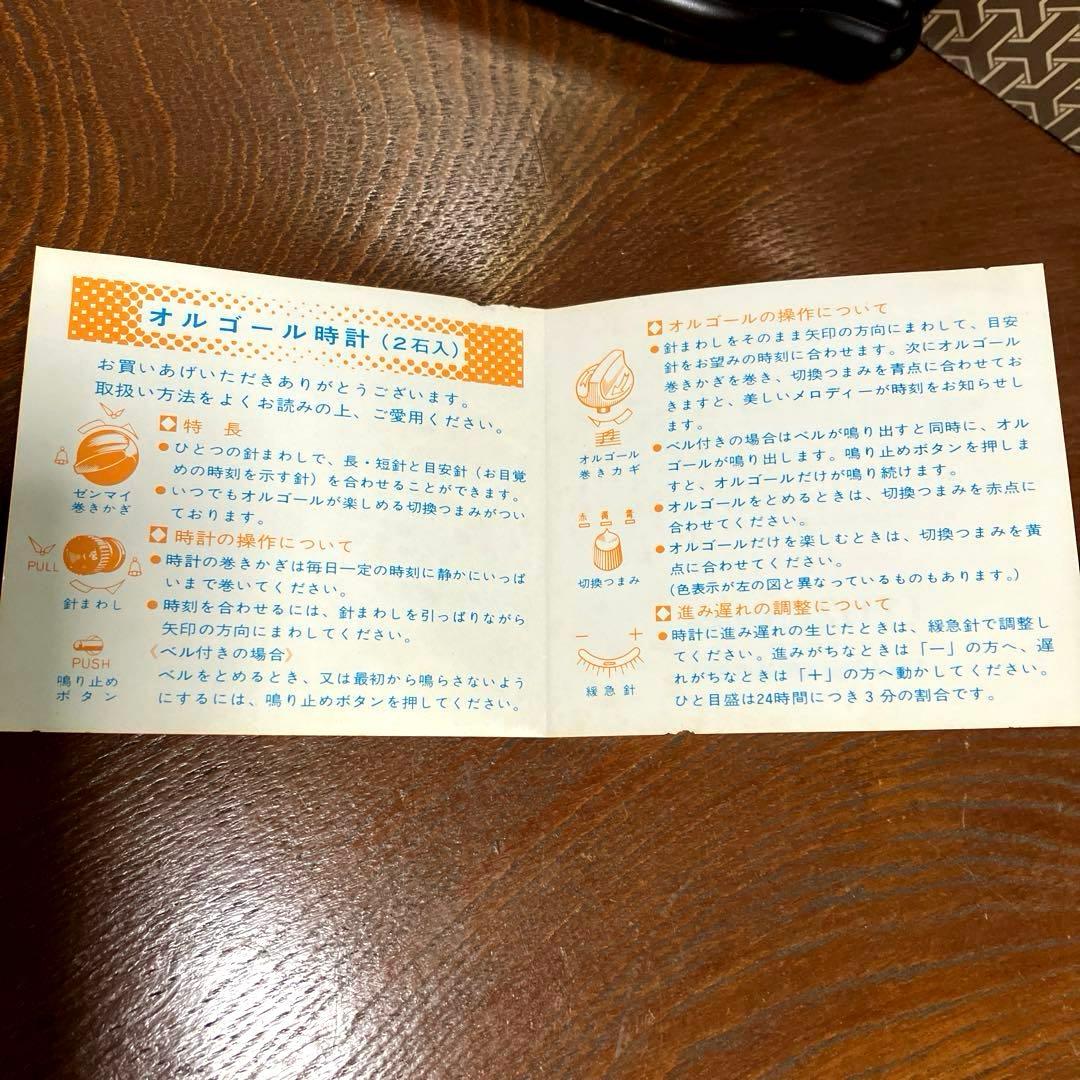 オルゴール時計(2石入)
お買いあげいただきありがとうございます。
取扱い方法をよくお読みの上、ご愛用ください。
ゼンマイ
巻きかぎ
PULL
針まわし
PUSH
鳴り止め
ボタン
特長
●ひとつの針まわしで、長・短針と目安針(お目覚
めの時刻を示す針)を合わせることができます。
●いつでもオルゴールが楽しめる切換つまみがつい
ております。
時計の操作について
●時計の巻きかぎは毎日一定の時刻に静かにいっぱ
いまで巻いてください。
●時刻を合わせるには、針まわしを引っぱりながら
矢印の方向にまわしてください。
《ベル付きの場合》
ベルをとめるとき、又は最初から鳴らさないよう
にするには、鳴り止めボタンを押してください。
オルゴール
巻きカギ
赤 黄 青
切換つまみ
− +
緩急針
オルゴールの操作について
●針まわしをそのまま矢印の方向にまわして、目安
針をお望みの時刻に合わせます。次にオルゴール
巻きかぎを巻き、切換つまみを青点に合わせてお
きますと、美しいメロディーが時刻をお知らせし
ます。
●ベル付きの場合はベルが鳴り出すと同時に、オル
ゴールが鳴り出します。鳴り止めボタンを押しま
すと、オルゴールだけが鳴り続けます。
●オルゴールをとめるときは、切換つまみを赤点に
合わせてください。
●オルゴールだけを楽しむときは、切換つまみを黄
点に合わせてください。
(色表示が左の図と異なっているものもあります。)
進み遅れの調整について
●時計に進み遅れの生じたときは、緩急針で調整し
てください。進みがちなときは「−」の方へ、遅
れがちなときは「+」の方へ動かしてください。
ひと目盛は24時間につき3分の割合です。